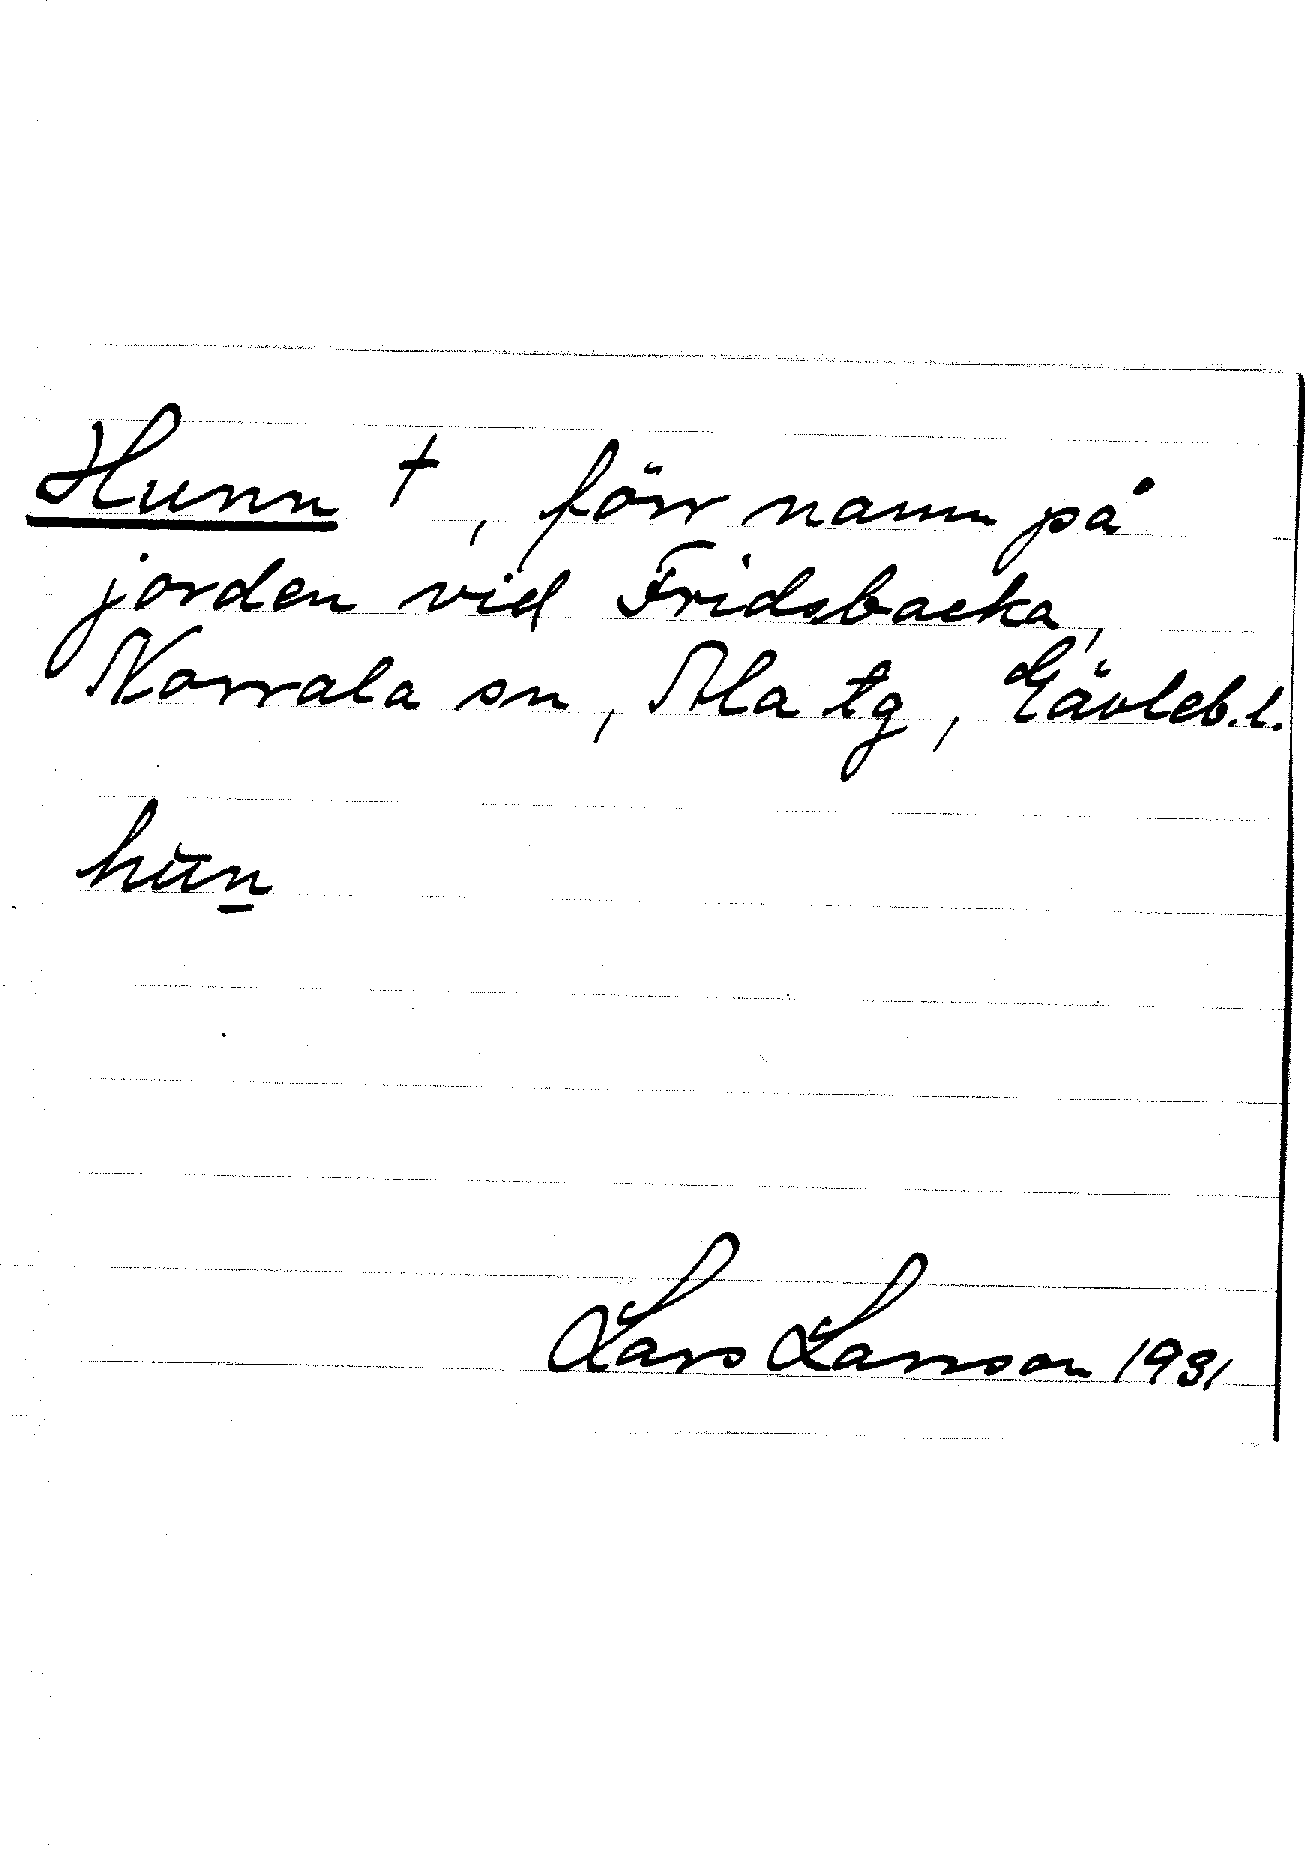 Hunn †, förr namn på
jorden vid Fridsbacka,
Norrala sn, Ala tg, Gävleb. l.
hūn̲
Lars Larsson 1931